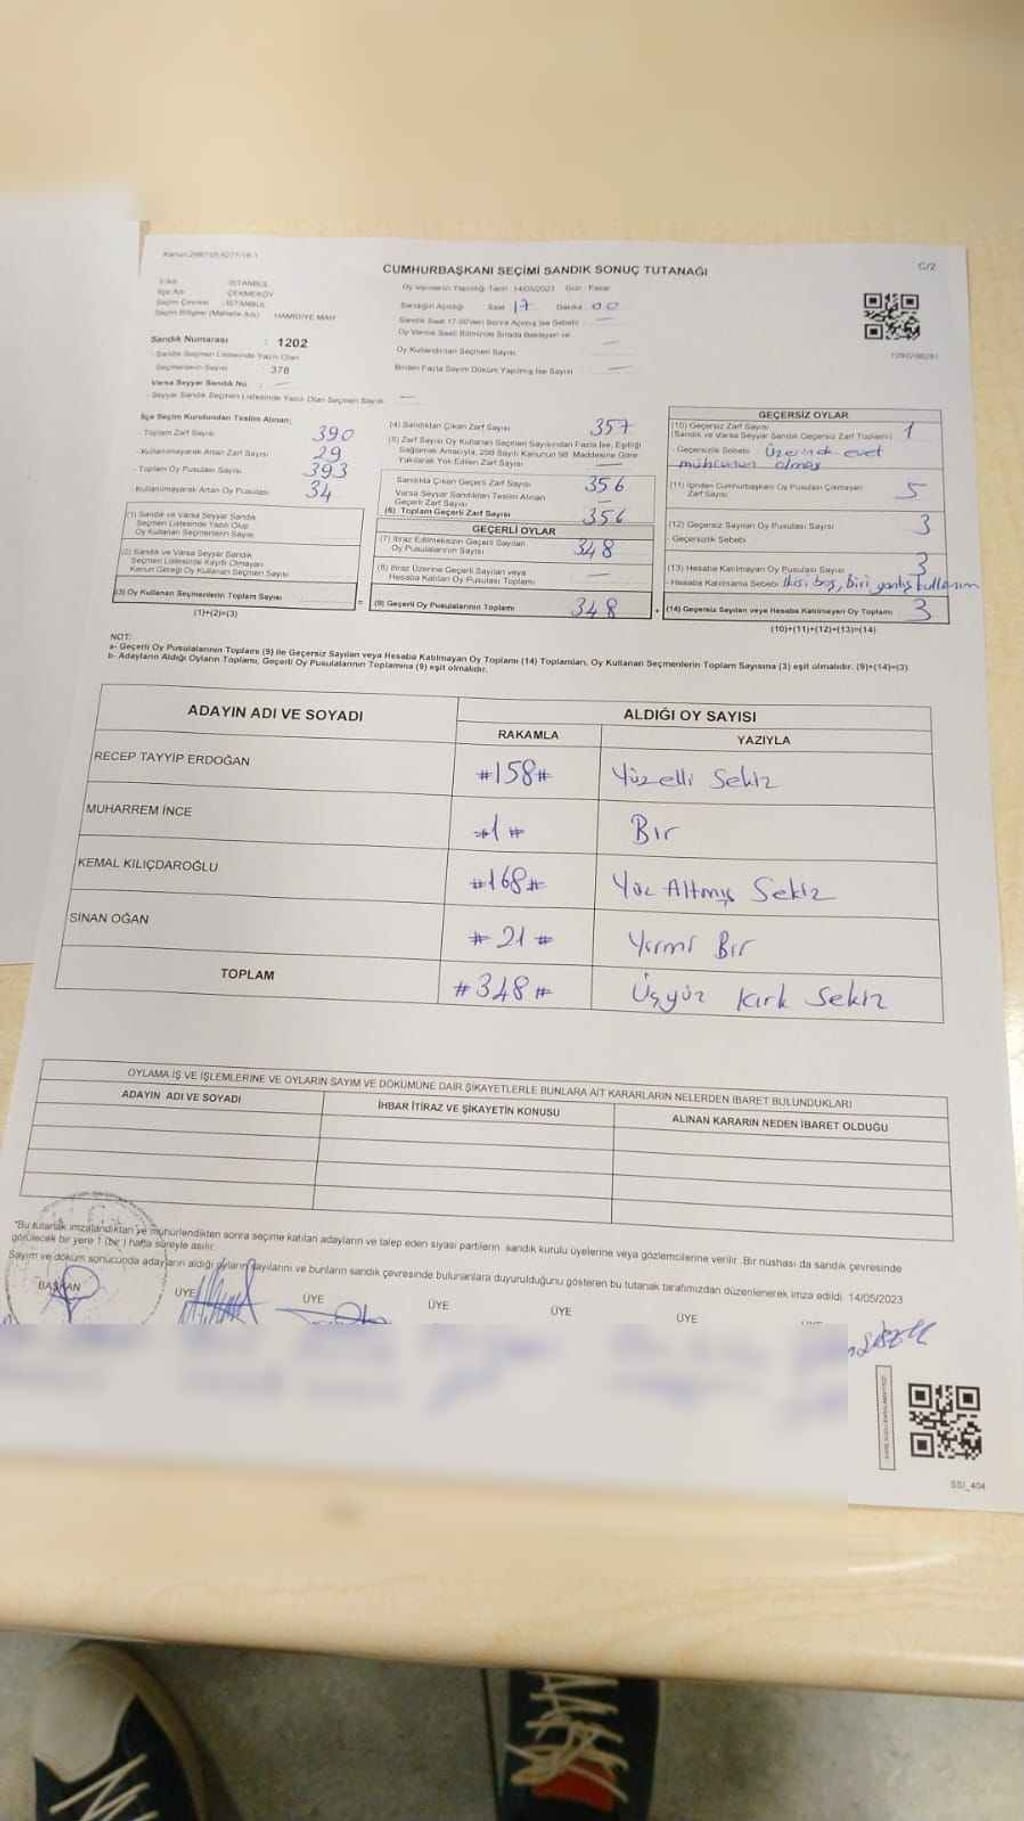 C/2
CUMHURBAŞKANI SEÇİMİ SANDIK SONUÇ TUTANAĞI
İSTANBUL
ÇEKMEKÖY
İSTANBUL
HAMİDİYE MAH
Oy Vermenin Yapıldığı Tarih : 14/05/2023 Gün : Pazar
Sandığın Açıldığı Saat 17 Dakika 00
Sandık Numarası : 1202
Sandık Seçmen Listesinde Yazılı Olan
Seçmenlerin Sayısı 378
Varsa Seyyar Sandık No : —
Seyyar Sandık Seçmen Listesinde Yazılı Olan Seçmen Sayısı —
Oy Kullandırılan Seçmen Sayısı —
Birden Fazla Sayım Döküm Yapılmış İse Sayısı —
İlçe Seçim Kurulundan Teslim Alınan;
Toplam Zarf Sayısı 390
Kullanılmayarak Artan Zarf Sayısı 29
Toplam Oy Pusulası Sayısı 393
Kullanılmayarak Artan Oy Pusulası 34
(1) Sandık ve Varsa Seyyar Sandık
Seçmen Listesinde Yazılı Olup
Oy Kullanan Seçmenlerin Sayısı
(2) Sandık ve Varsa Seyyar Sandık
Seçmen Listesinde Kayıtlı Olmayan
Kanun Gereği Oy Kullanan Seçmen Sayısı
(3) Oy Kullanan Seçmenlerin Toplam Sayısı
(1)+(2)=(3)
=
(4) Sandıktan Çıkan Zarf Sayısı 357
(5) Zarf Sayısı Oy Kullanan Seçmen Sayısından Fazla İse, Eşitliği
Sağlamak Amacıyla, 298 Sayılı Kanunun 98. Maddesine Göre
Yakılarak Yok Edilen Zarf Sayısı —
Sandıkta Çıkan Geçerli Zarf Sayısı 356
Varsa Seyyar Sandıktan Teslim Alınan
Geçerli Zarf Sayısı —
(6) Toplam Geçerli Zarf Sayısı 356
GEÇERLİ OYLAR
(7) İtiraz Edilmeksizin Geçerli Sayılan
Oy Pusulalarının Sayısı 348
(8) İtiraz Üzerine Geçerli Sayılan veya
Hesaba Katılan Oy Pusulası Toplamı —
(9) Geçerli Oy Pusulalarının Toplamı 348
+
GEÇERSİZ OYLAR
(10) Geçersiz Zarf Sayısı 1
(Sandık ve Varsa Seyyar Sandık Geçersiz Zarf Toplamı)
Geçersizlik Sebebi Üzerinde evet
mührünün olması
(11) İçinden Cumhurbaşkanı Oy Pusulası Çıkmayan
Zarf Sayısı 5
(12) Geçersiz Sayılan Oy Pusulası Sayısı 3
Geçersizlik Sebebi
(13) Hesaba Katılmayan Oy Pusulası Sayısı 3
Hesaba Katılmama Sebebi İkisi boş, Biri yanlış kullanım
(14) Geçersiz Sayılan veya Hesaba Katılmayan Oy Toplamı 3
(10)+(11)+(12)+(13)=(14)
NOT:
a- Geçerli Oy Pusulalarının Toplamı (9) ile Geçersiz Sayılan veya Hesaba Katılmayan Oy Toplamı (14) Toplamları, Oy Kullanan Seçmenlerin Toplam Sayısına (3) eşit olmalıdır. (9)+(14)=(3)
b- Adayların Aldığı Oyların Toplamı, Geçerli Oy Pusulalarının Toplamına (9) eşit olmalıdır.
ADAYIN ADI VE SOYADI
ALDIĞI OY SAYISI
RAKAMLA YAZIYLA
RECEP TAYYİP ERDOĞAN #158# Yüzelli Sekiz
MUHARREM İNCE #1# Bir
KEMAL KILIÇDAROĞLU #168# Yüz Altmış Sekiz
SİNAN OĞAN #21# Yirmi Bir
TOPLAM #348# Üçyüz Kırk Sekiz
OYLAMA İŞ VE İŞLEMLERİNE VE OYLARIN SAYIM VE DÖKÜMÜNE DAİR ŞİKAYETLERLE BUNLARA AİT KARARLARIN NELERDEN İBARET BULUNDUKLARI
ADAYIN ADI VE SOYADI İHBAR İTİRAZ VE ŞİKAYETİN KONUSU ALINAN KARARIN NEDEN İBARET OLDUĞU
*Bu tutanak imzalandıktan ve mühürlendikten sonra seçime katılan adayların ve talep eden siyasi partilerin sandık kurulu üyelerine veya gözlemcilerine verilir. Bir nüshası da sandık çevresinde
görülecek bir yere 1 (bir) hafta süreyle asılır.
Sayım ve döküm sonucunda adayların aldığı oyların sayılarını ve bunların sandık çevresinde bulunanlara duyurulduğunu gösteren bu tutanak tarafımızdan düzenlenerek imza edildi. 14/05/2023
BAŞKAN ÜYE ÜYE ÜYE ÜYE ÜYE
SSI_404